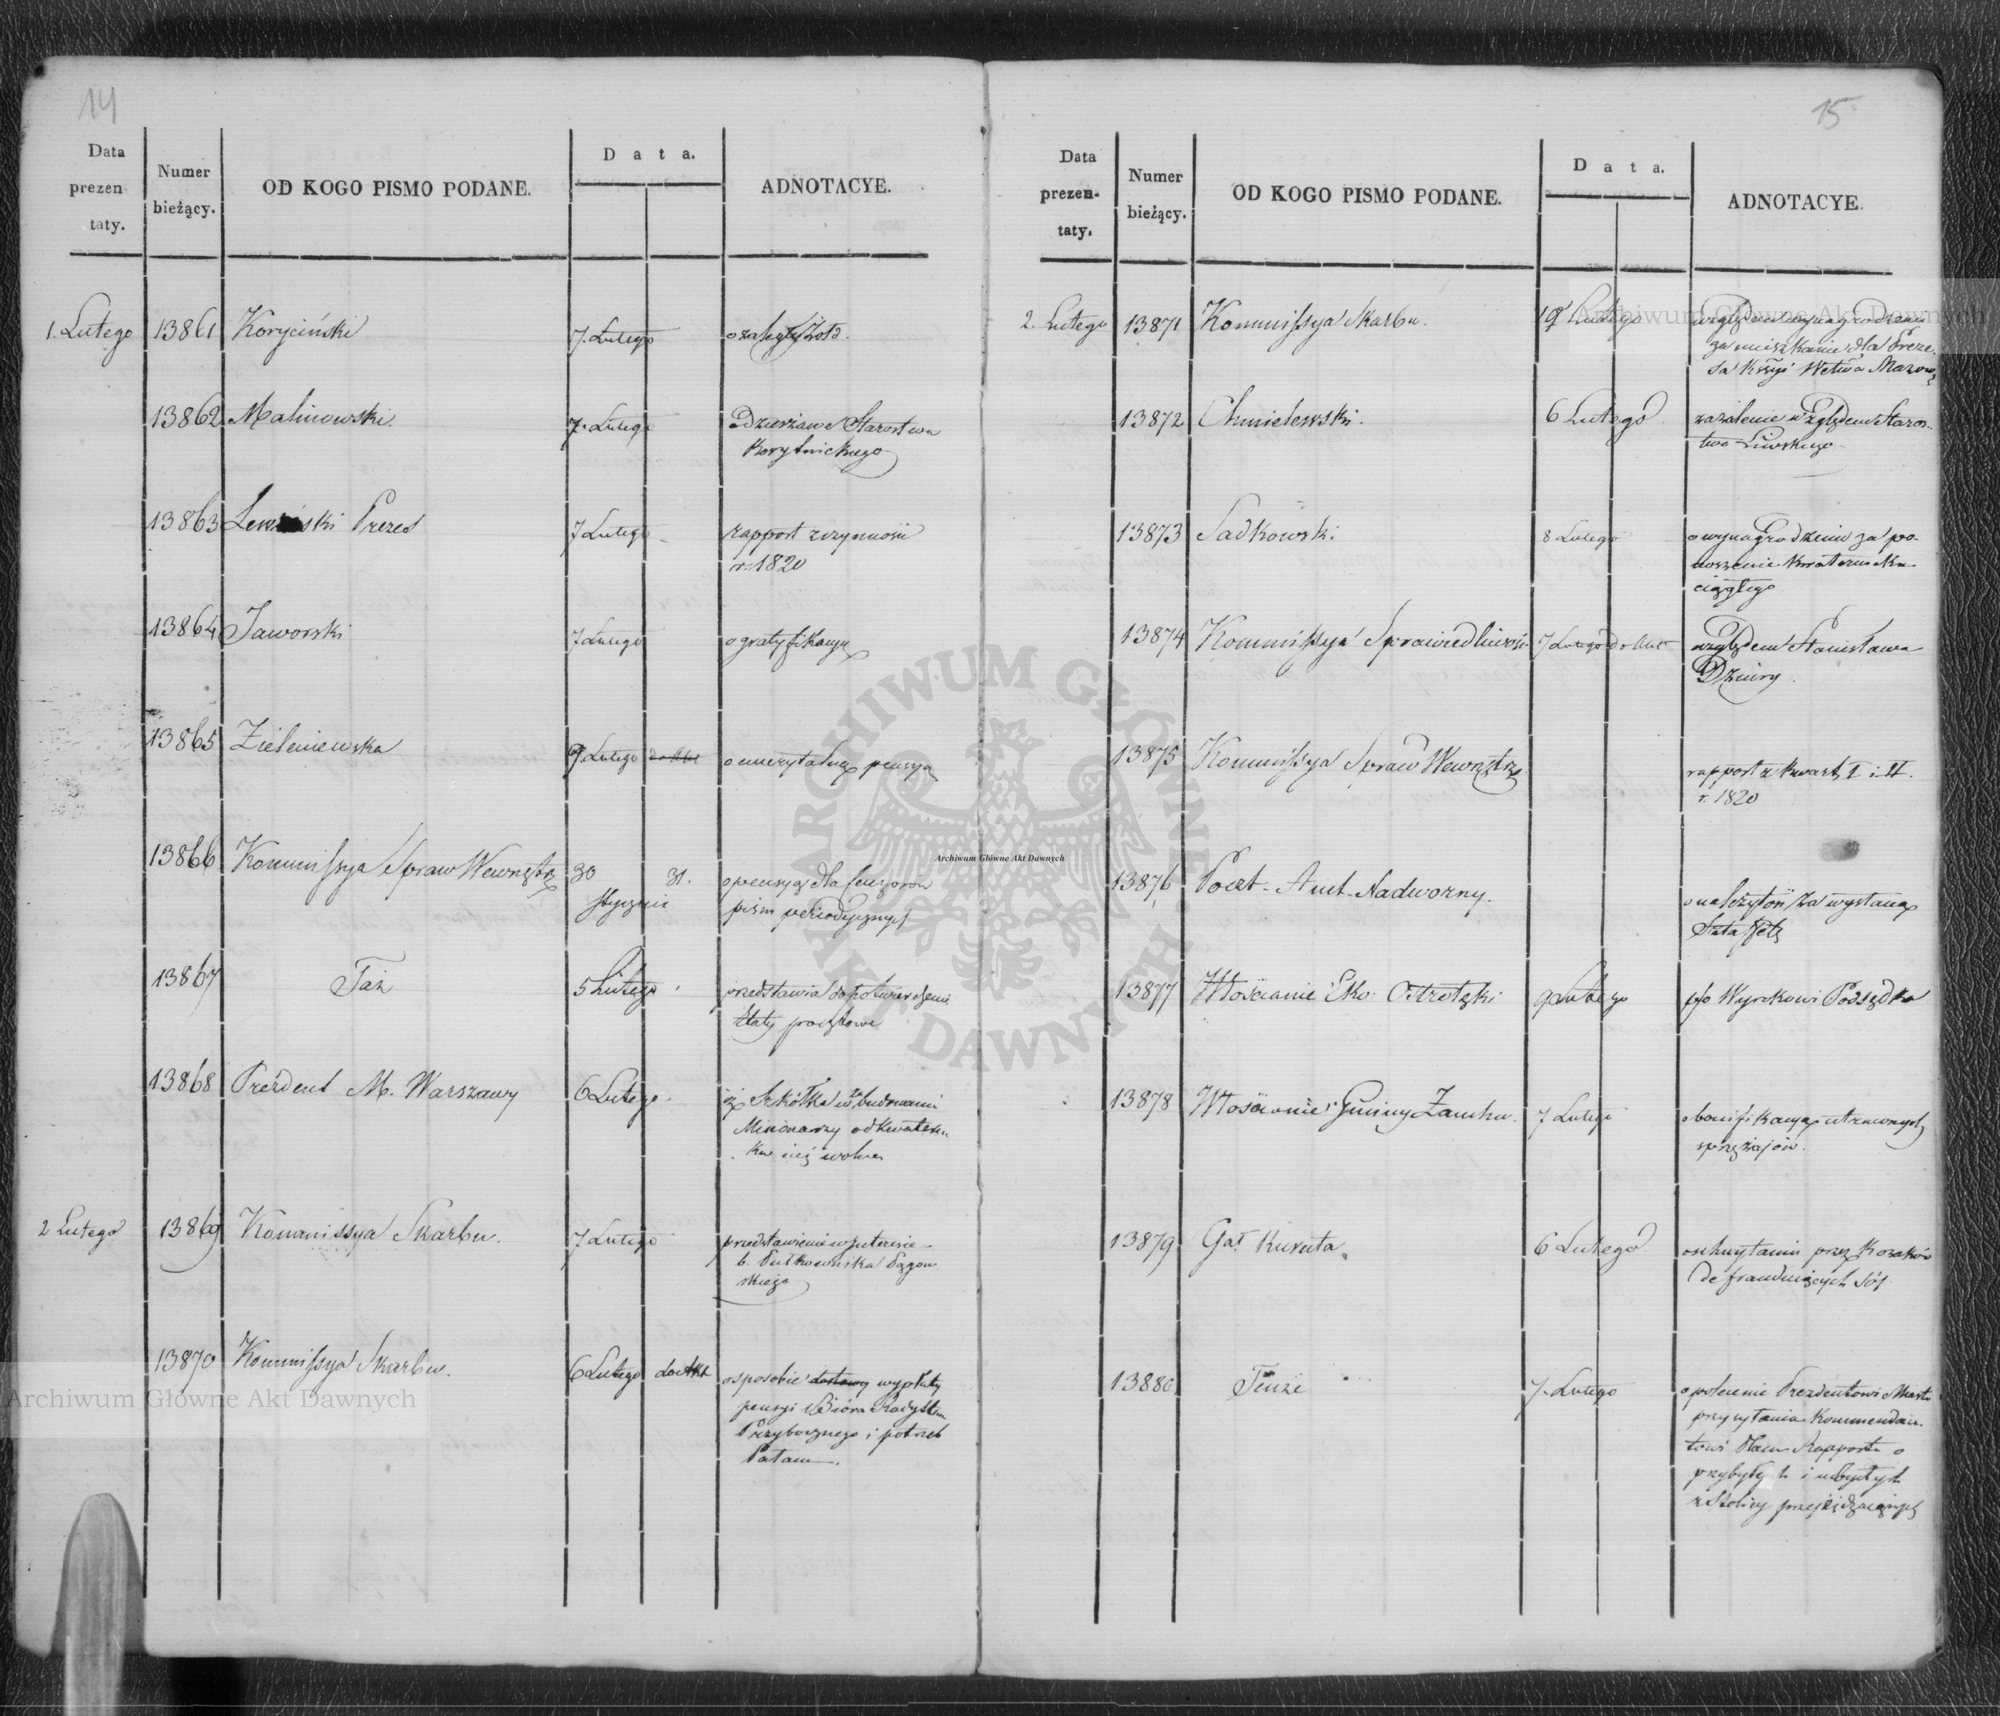 14
Data
prezen
taty.
Numer
bieżący.
OD KOGO PISMO PODANE.
Data.
ADNOTACYE.
1. Lutego 13861 Koryciński 7. Lutego o zaległy żołd.
13862 Malinowski. 7. Lutego Dzierżawę Starostwa
Korytnickiego
13863 Prezes 7 Lutego rapport z czynności
r. 1820
13864 Jaworski 7 Lutego o gratyfikacyę
13865 Zieleniewska 9 Lutego do Akt o emerytalną pensyą
13866 Kommissya Spraw Wewnętrz 30 31. o pensyą dla Cenzorów
Stycznia pism periodycznych
13867 Taż 5 Lutego przedstawia do potwierdzenia
Etaty pocztowe
13868 Prezdent M. Warszawy 6 Lutego. iż Szkółka w zabudowaniu
Missionarzy od kwaterun
ku jest wolna
2 Lutego 13869 Kommissya Skarbu. 7 Lutego przedstawienie w interesie
b. Pułkownika
skiego
13870 Kommissya Skarbu. 6 Lutego do Akt o sposobie dostawy wypłaty
pensyi i Bióra
Przybocznego i potrzeb
Pałacu.
15
Data
prezen-
taty.
Numer
bieżący.
OD KOGO PISMO PODANE.
Data.
ADNOTACYE.
2. Lutego 13871 Kommissya Skarbu. Lutego względem wynagrodzenia
za mieszkanie dla Preze-
sa Kssyi Wctwa Mazow
13872 Chmielewski. 6 Lutego zażalenie względem Staros-
twa Liwskiego
13873 Sadkowski 8 Lutego o wynagrodzenie za po-
noszenie kwaterunku
ciągłego
13874 Kommissya Sprawiedliwości 7 Lutego do Akt względem Stanisława
Dziury.
13875 Kommissya Spraw Wewnętrz rapport z kwart. I i II.
r. 1820
13876 Poczt-Amt Nadworny. o należytość za wysłaną
Sztafetę
13877 Włościanie Eko: Ostrołęki 9 Lutego pko Wyrokowi Podsędka
13878 Włościanie Gminy Zamku. 7 Lutego o bonifikacyą utraconych
sprzężajów.
13879 Gał Kuruta. 6 Lutego o schwytaniu przez Kozaków
defraudujących sól.
13880 Tenże 7. Lutego o polecenie Prezdentowi Miasta
przysyłania Kommendan-
towi Placu Rapportu o
przybyłych i ubyłych
z Stolicy przejeżdzających
ARCHIWUM GŁÓWNE
AKT DAWNYCH
Archiwum Główne Akt Dawnych
Archiwum Główne Akt Dawnych
Archiwum Główne Akt Dawnych